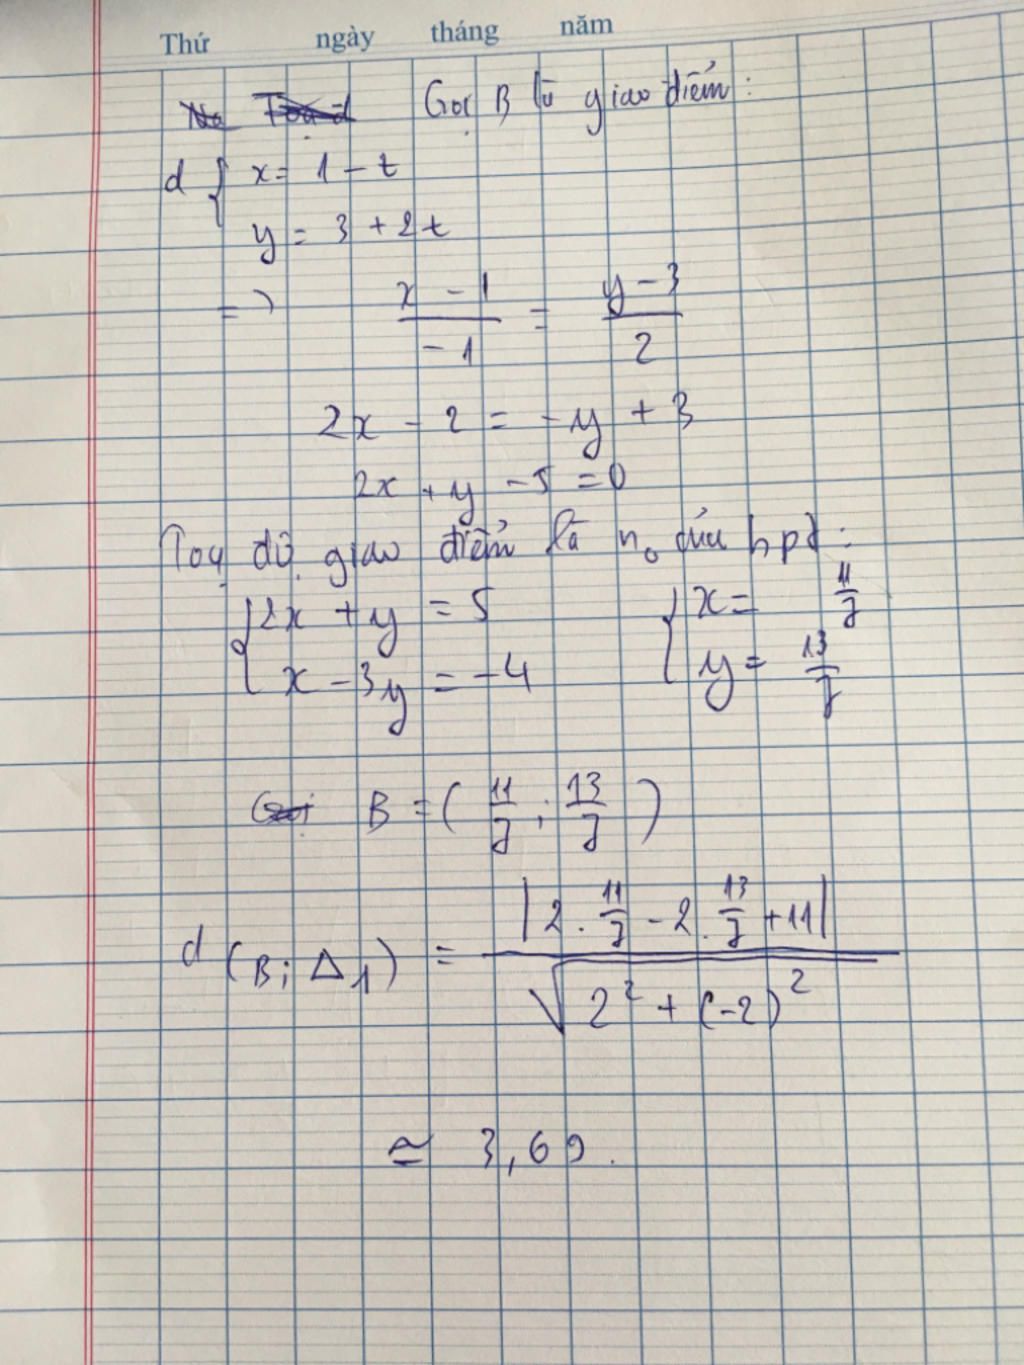 Thứ ngày tháng năm
Gọi B là giao điểm:
d { x = 1 - t
y = 3 + 2t
=> (x - 1)/(-1) = (y - 3)/2
2x - 2 = -y + 3
2x + y - 5 = 0
Toạ độ giao điểm là n₀ của hpt:
{ 2x + y = 5 { x = 11/7
x - 3y = -4 y = 13/7
B = ( 11/7 ; 13/7 )
d (B; Δ1) = |2 . 11/7 - 2 . 13/7 + 11| / √(2² + (-2)²)
≃ 3,69.